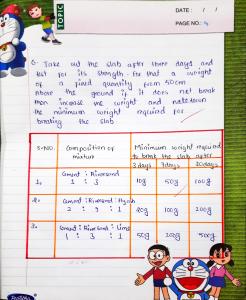 TOPIC
DATE: / /
PAGE NO.:
6. Take out the slab after three days and
test for its strength. for that a weight
of a fixed quantity from 50cm
Above the ground if it does not break
then increase the weight and note down
the minimum weight required for
breaking the slab.
S.NO. Composition of mixture Minimum weight required to break the slab after
3 days 7 days 30 days
1. Cement : Riversand
1 : 3 10g 50g 100g
2. Cement : Riversand :
2 : 9 : 1 20g 100g 200g
3. Cement : Riversand : Lime
1 : 3 : 1 50g 200g 500g